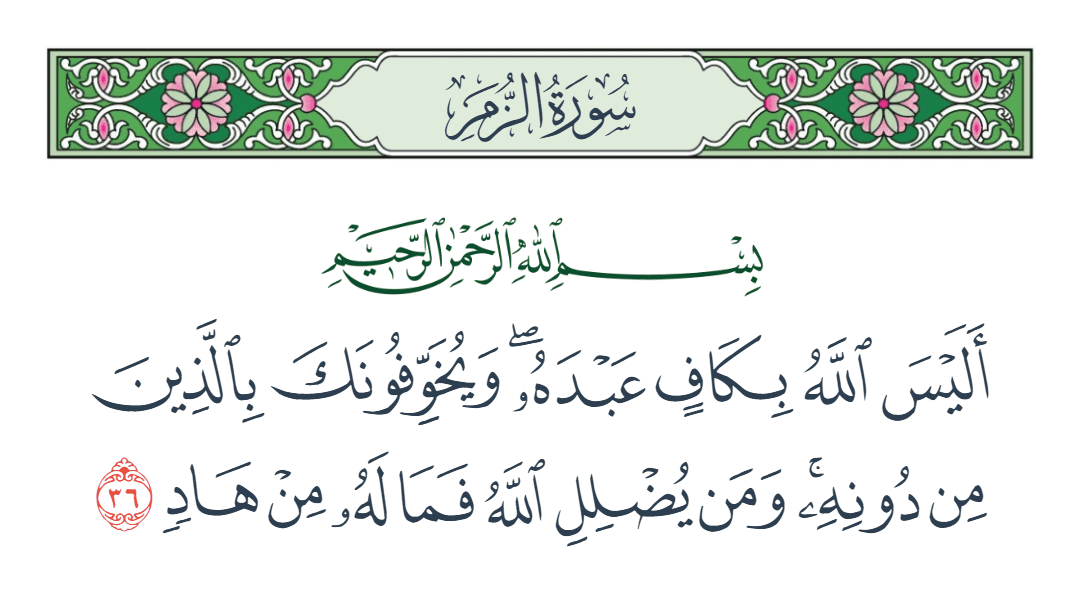 سُورَةُ الزُّمَرِ
بِسْمِ ٱللَّهِ ٱلرَّحْمَٰنِ ٱلرَّحِيمِ
أَلَيْسَ ٱللَّهُ بِكَافٍ عَبْدَهُۥۖ وَيُخَوِّفُونَكَ بِٱلَّذِينَ
مِن دُونِهِۦۚ وَمَن يُضْلِلِ ٱللَّهُ فَمَا لَهُۥ مِنْ هَادٍ ٣٦